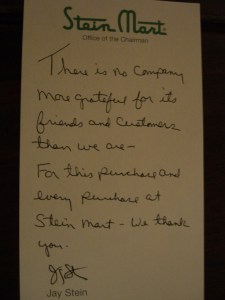 Stein Mart
Office of the Chairman
There is no Company
more grateful for its
friends and Customers
than we are –
For this purchase and
every purchase at
Stein Mart – We thank
you.
Jay Stein